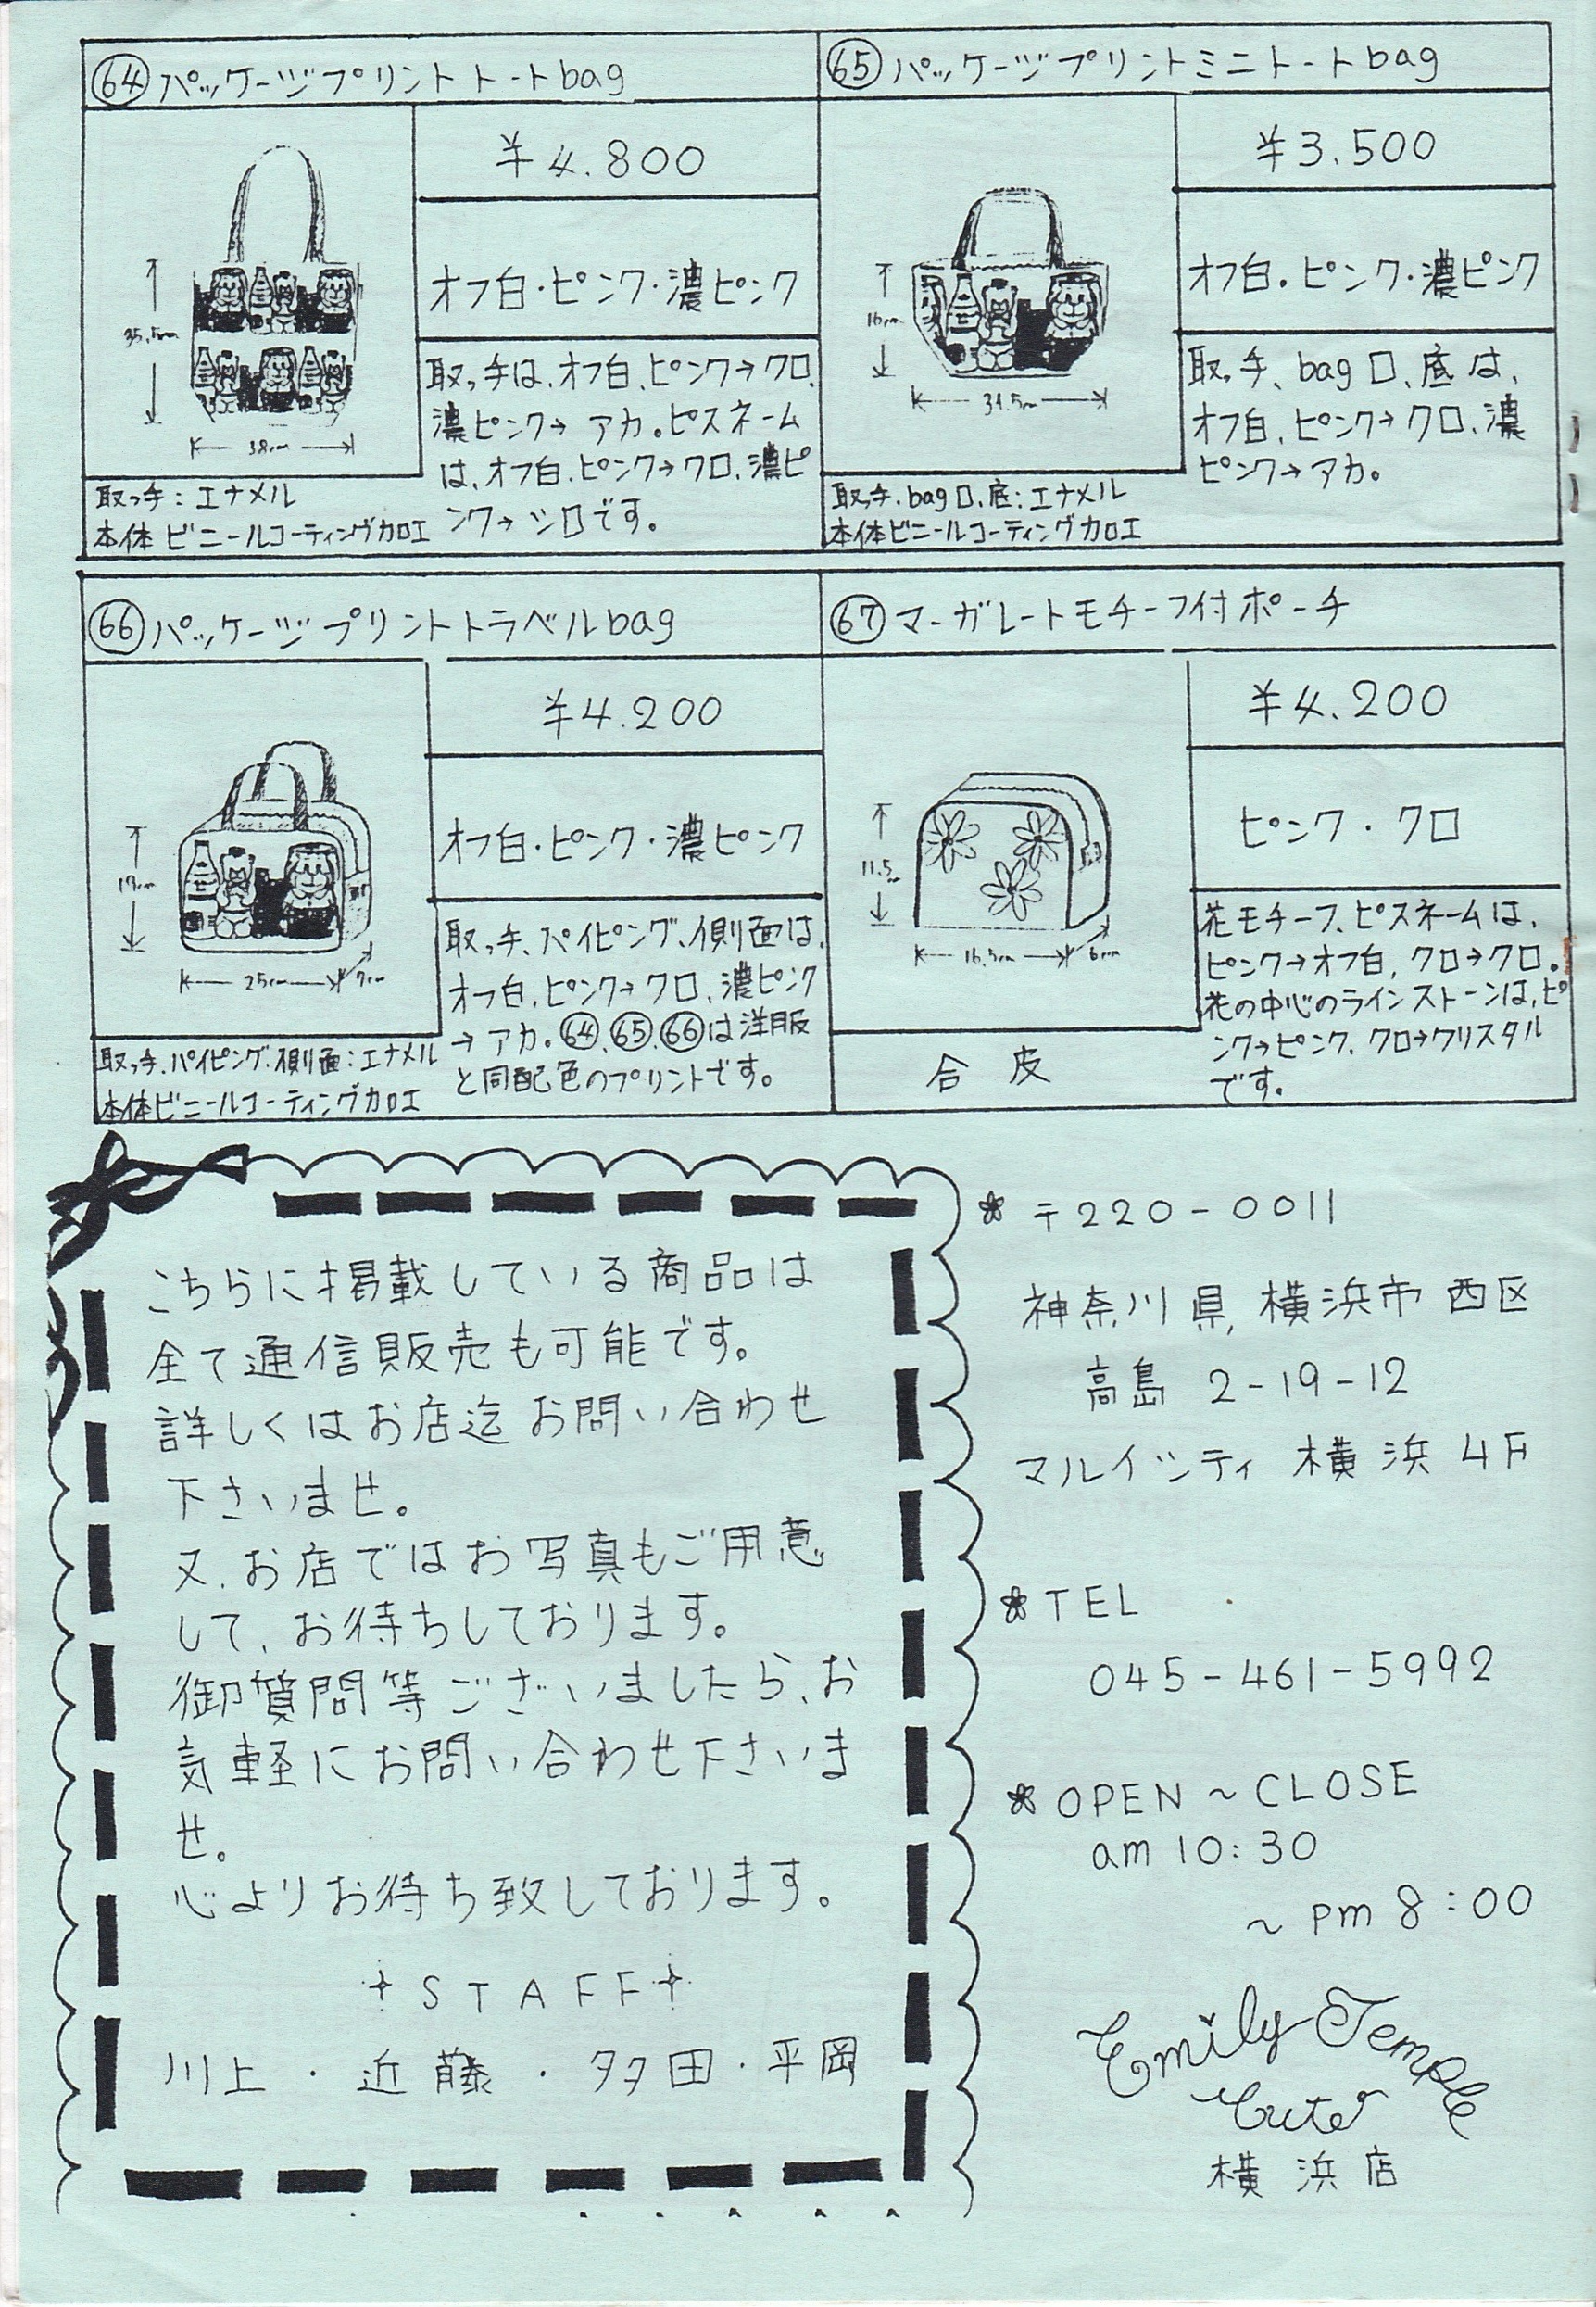 64 パッケージプリントトートbag
¥4.800
オフ白・ピンク・濃ピンク
35.5cm
38cm
取っ手は、オフ白、ピンク→クロ、
濃ピンク→アカ。ピスネーム
は、オフ白、ピンク→クロ、濃ピ
ンク→シロです。
取っ手：エナメル
本体ビニールコーティング加工
65 パッケージプリントミニトートbag
¥3.500
オフ白・ピンク・濃ピンク
16cm
31.5cm
取っ手、bag口、底は、
オフ白、ピンク→クロ、濃
ピンク→アカ。
取っ手、bag口、底：エナメル
本体ビニールコーティング加工
66 パッケージプリントトラベルbag
¥4.200
オフ白・ピンク・濃ピンク
25cm
7cm
取っ手、パイピング、側面は、
オフ白、ピンク→クロ、濃ピンク
→アカ。64、65、66は洋服
と同配色のプリントです。
取っ手、パイピング、側面：エナメル
本体ビニールコーティング加工
67 マーガレートモチーフ付ポーチ
¥4.200
ピンク・クロ
11.5cm
16.5cm
6cm
花モチーフ、ピスネームは、
ピンク→オフ白、クロ→クロ。
花の中心のラインストーンは、ピ
ンク→ピンク、クロ→クリスタル
です。
合皮
こちらに掲載している商品は
全て通信販売も可能です。
詳しくはお店迄お問い合わせ
下さいませ。
又、お店ではお写真もご用意
して、お待ちしております。
御質問等ございましたら、お
気軽にお問い合わせ下さいま
せ。
心よりお待ち致しております。
STAFF
川上・近藤・多田・平岡
〒220-0011
神奈川県、横浜市西区
高島 2-19-12
マルイシティ横浜4F
TEL
045-461-5992
OPEN～CLOSE
am 10:30
～pm 8:00
Emily Temple
Cute
横浜店